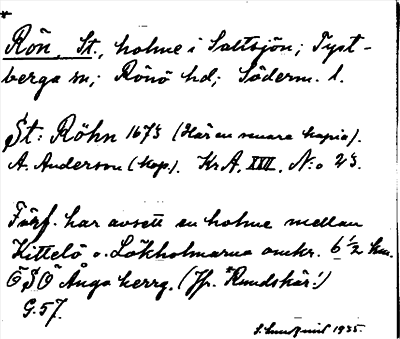 *
Rön, St., holme i Saltsjön; Tyst-
berga sn; Rönö hd; Söderm. l.
St: Röhn 1673 (Här en senare kopia).
A. Anderson (kop.). Kr.A. XXII. N:o 23.
Förf. har avsett en holme mellan
Kittelö o. Lökholmarna omkr. 6 1/2 km.
ÖSÖ Ånga herrg. (Jfr. *Rundskär!)
G.57.
1935.